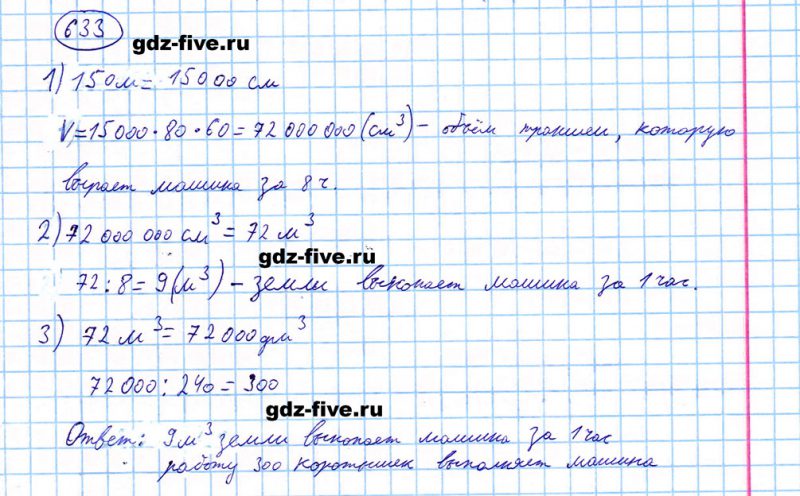 633
gdz-five.ru
1) 150м = 15000 см
V=15000·80·60=72 000 000 (см³) – объём траншеи, которую
выроет машина за 8 ч.
2) 72 000 000 см³ = 72 м³
gdz-five.ru
72:8=9(м³) – земли выкопает машина за 1 час.
3) 72 м³ = 72 000 дм³
72 000 : 240 = 300
gdz-five.ru
Ответ: 9м³ земли выкопает машина за 1 час
работу 300 коротышек выполняет машина